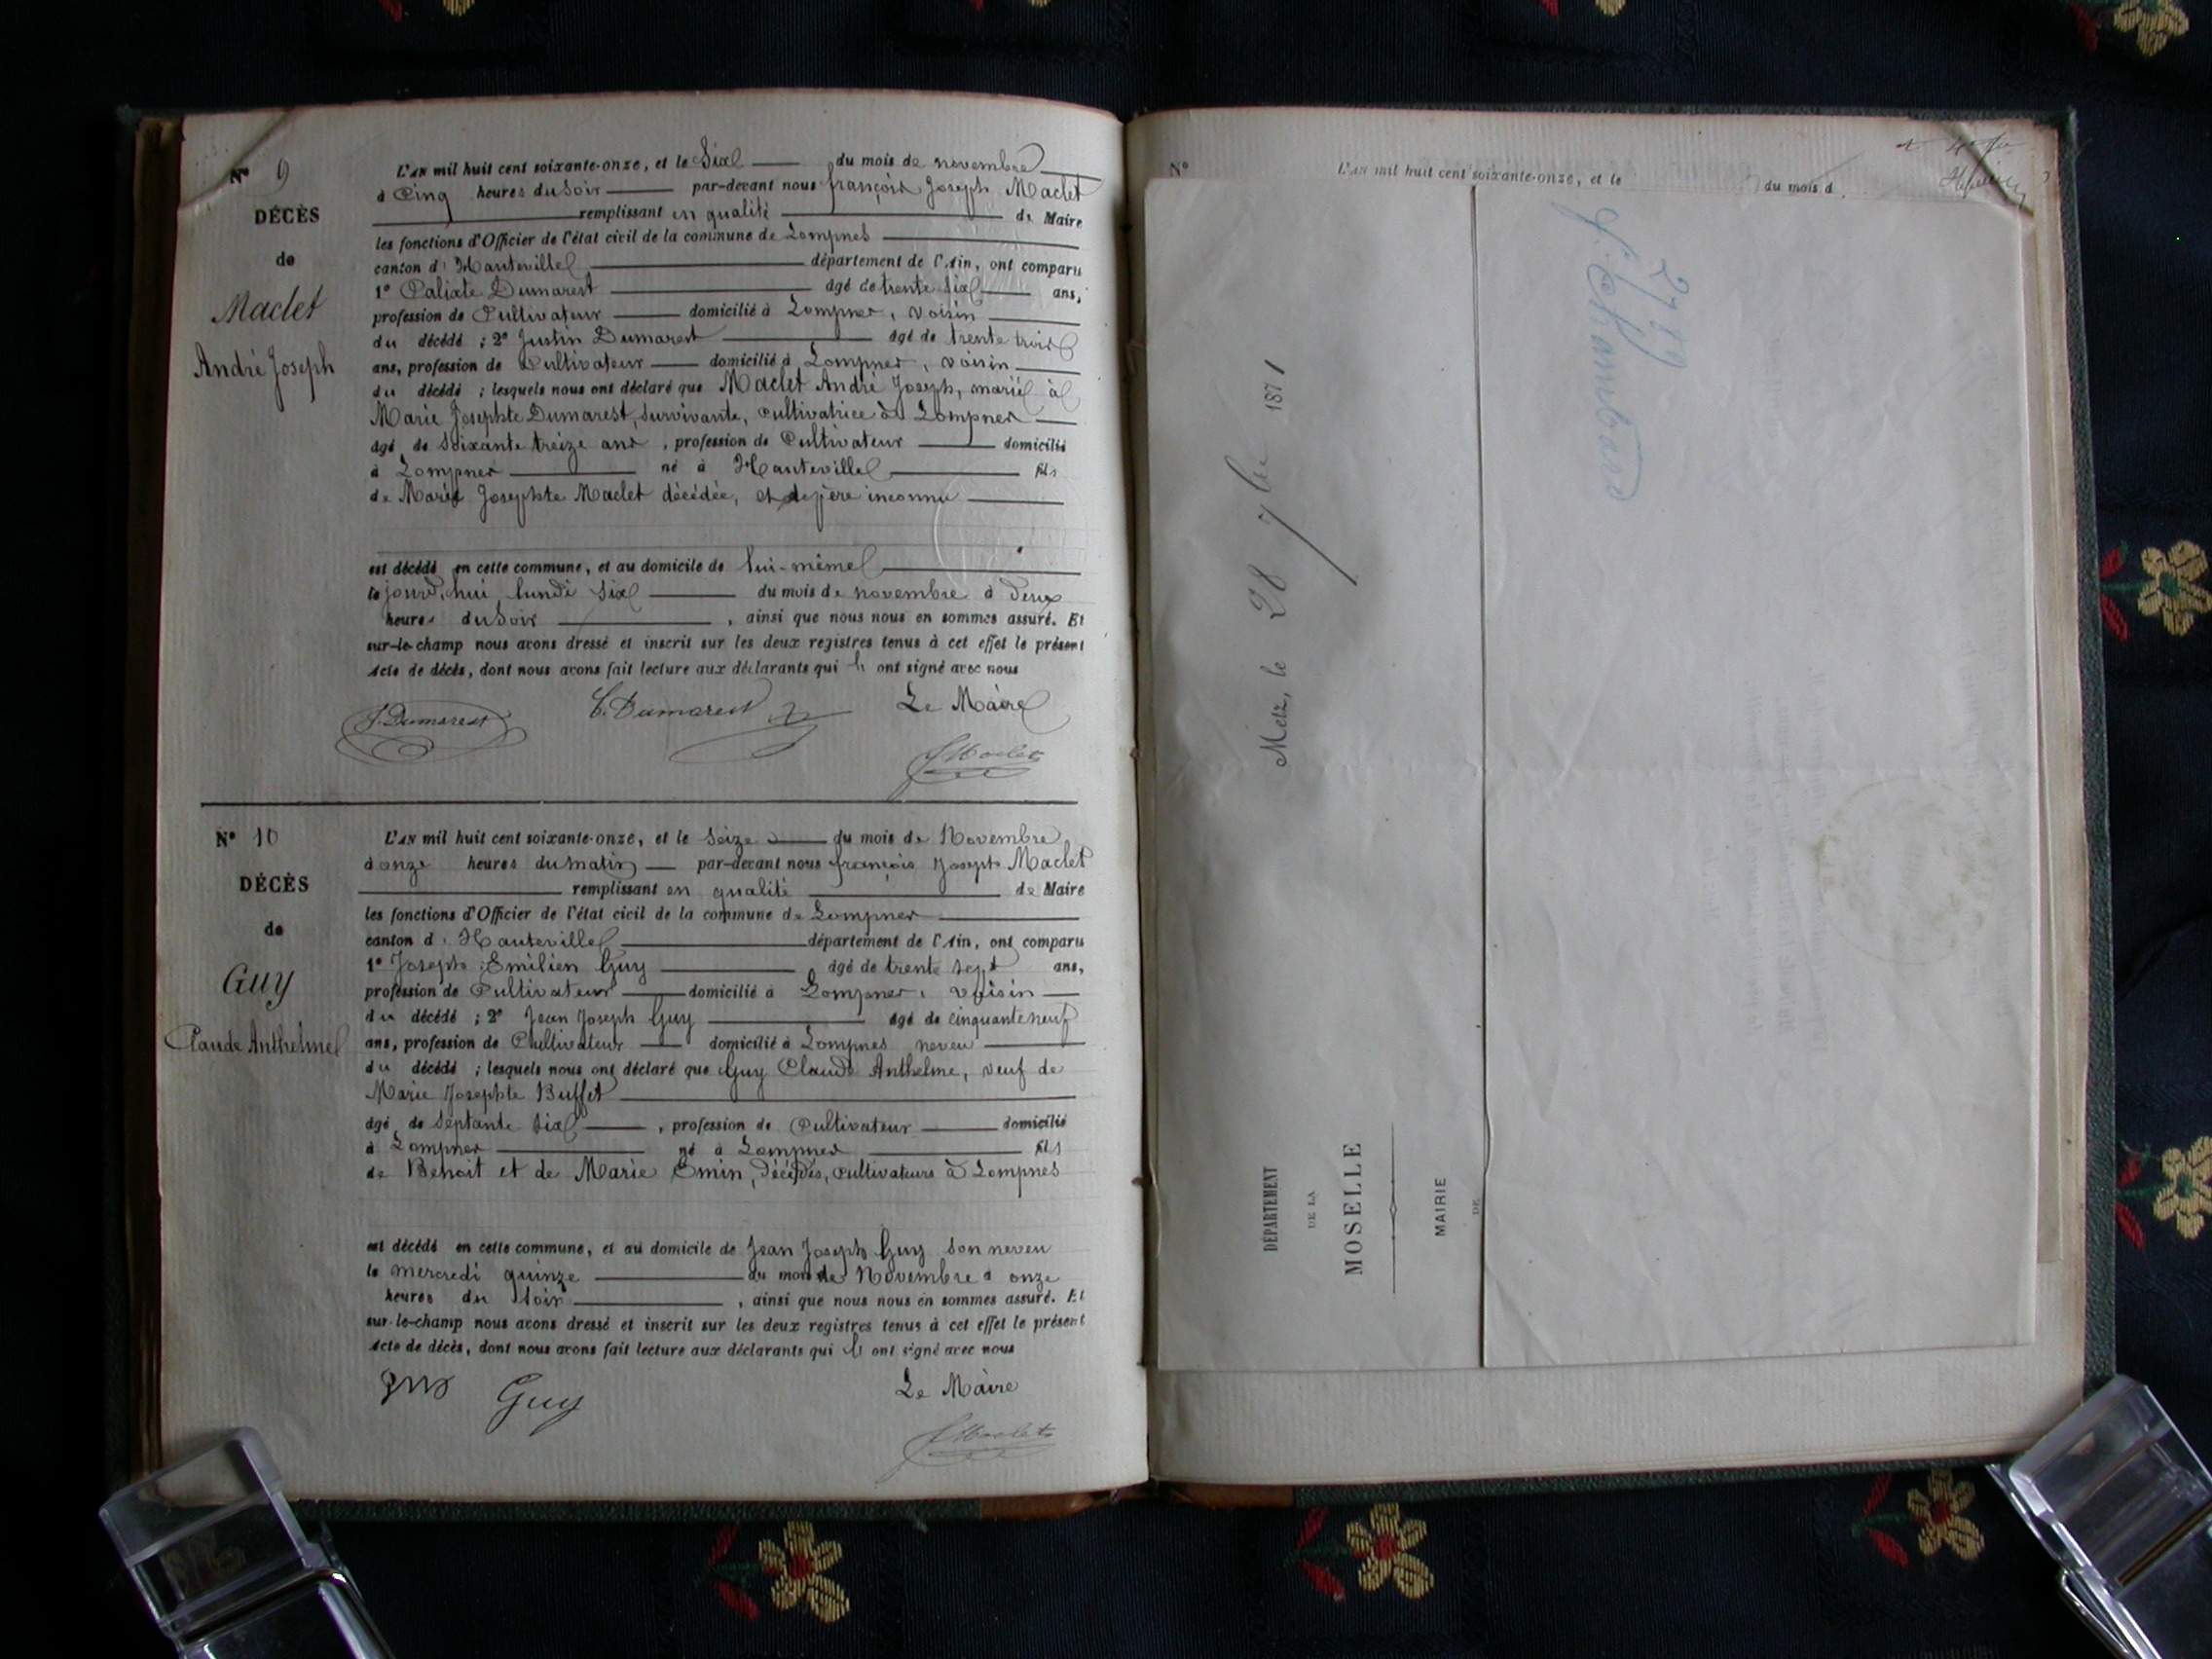 N° 9
DÉCÈS
de
Maclet
André Joseph
L'AN mil huit cent soixante-onze, et le Six du mois de novembre
à Cinq heures du Soir par-devant nous françois Joseph Maclet
remplissant en qualité de Maire
les fonctions d'Officier de l'état civil de la commune de Lompnes
canton d' Hauteville département de l'Ain, ont comparu
1° Calixte Dumarest âgé de trente six ans,
profession de Cultivateur domicilié à Lompnes, voisin
du décédé ; 2° Justin Dumarest âgé de trente trois
ans, profession de Cultivateur domicilié à Lompnes, voisin
du décédé ; lesquels nous ont déclaré que Maclet André Joseph, marié à
Marie Josephte Dumarest, survivante, cultivatrice à Lompnes
âgé de Soixante treize ans, profession de Cultivateur domicilié
à Lompnes né à Hauteville fils
de Marie Josephte Maclet décédée, et de père inconnu
est décédé en cette commune, et au domicile de lui-même
le jourd'hui lundi six du mois de novembre à Deux
heures du Soir, ainsi que nous nous en sommes assuré. Et
sur-le-champ nous avons dressé et inscrit sur les deux registres tenus à cet effet le présent
Acte de décès, dont nous avons fait lecture aux déclarants qui ont signé avec nous
J. Dumarest C. Dumarest Le Maire
f Maclet
N° 10
DÉCÈS
de
Guy
Claude Anthelme
L'AN mil huit cent soixante-onze, et le seize du mois de Novembre
à onze heures du matin par-devant nous françois Joseph Maclet
remplissant en qualité de Maire
les fonctions d'Officier de l'état civil de la commune de Lompnes
canton d' Hauteville département de l'Ain, ont comparu
1° Joseph Emilien Guy âgé de trente sept ans,
profession de Cultivateur domicilié à Lompnes, voisin
du décédé ; 2° Jean Joseph Guy âgé de cinquante neuf
ans, profession de Cultivateur domicilié à Lompnes neveu
du décédé ; lesquels nous ont déclaré que Guy Claude Anthelme, veuf de
Marie Josephte Buffet
âgé de Septante six, profession de Cultivateur domicilié
à Lompnes né à Lompnes fils
de Benoit et de Marie Emin, décédés, cultivateurs à Lompnes
est décédé en cette commune, et au domicile de Jean Joseph Guy son neveu
le mercredi quinze du mois de Novembre à onze
heures du Soir, ainsi que nous nous en sommes assuré. Et
sur-le-champ nous avons dressé et inscrit sur les deux registres tenus à cet effet le présent
Acte de décès, dont nous avons fait lecture aux déclarants qui ont signé avec nous
Guy Le Maire
f Maclet
N° L'AN mil huit cent soixante-onze, et le du mois d
DÉPARTEMENT
DE LA
MOSELLE
MAIRIE
DE
Metz, le 28 7bre 1871
f. Chambard